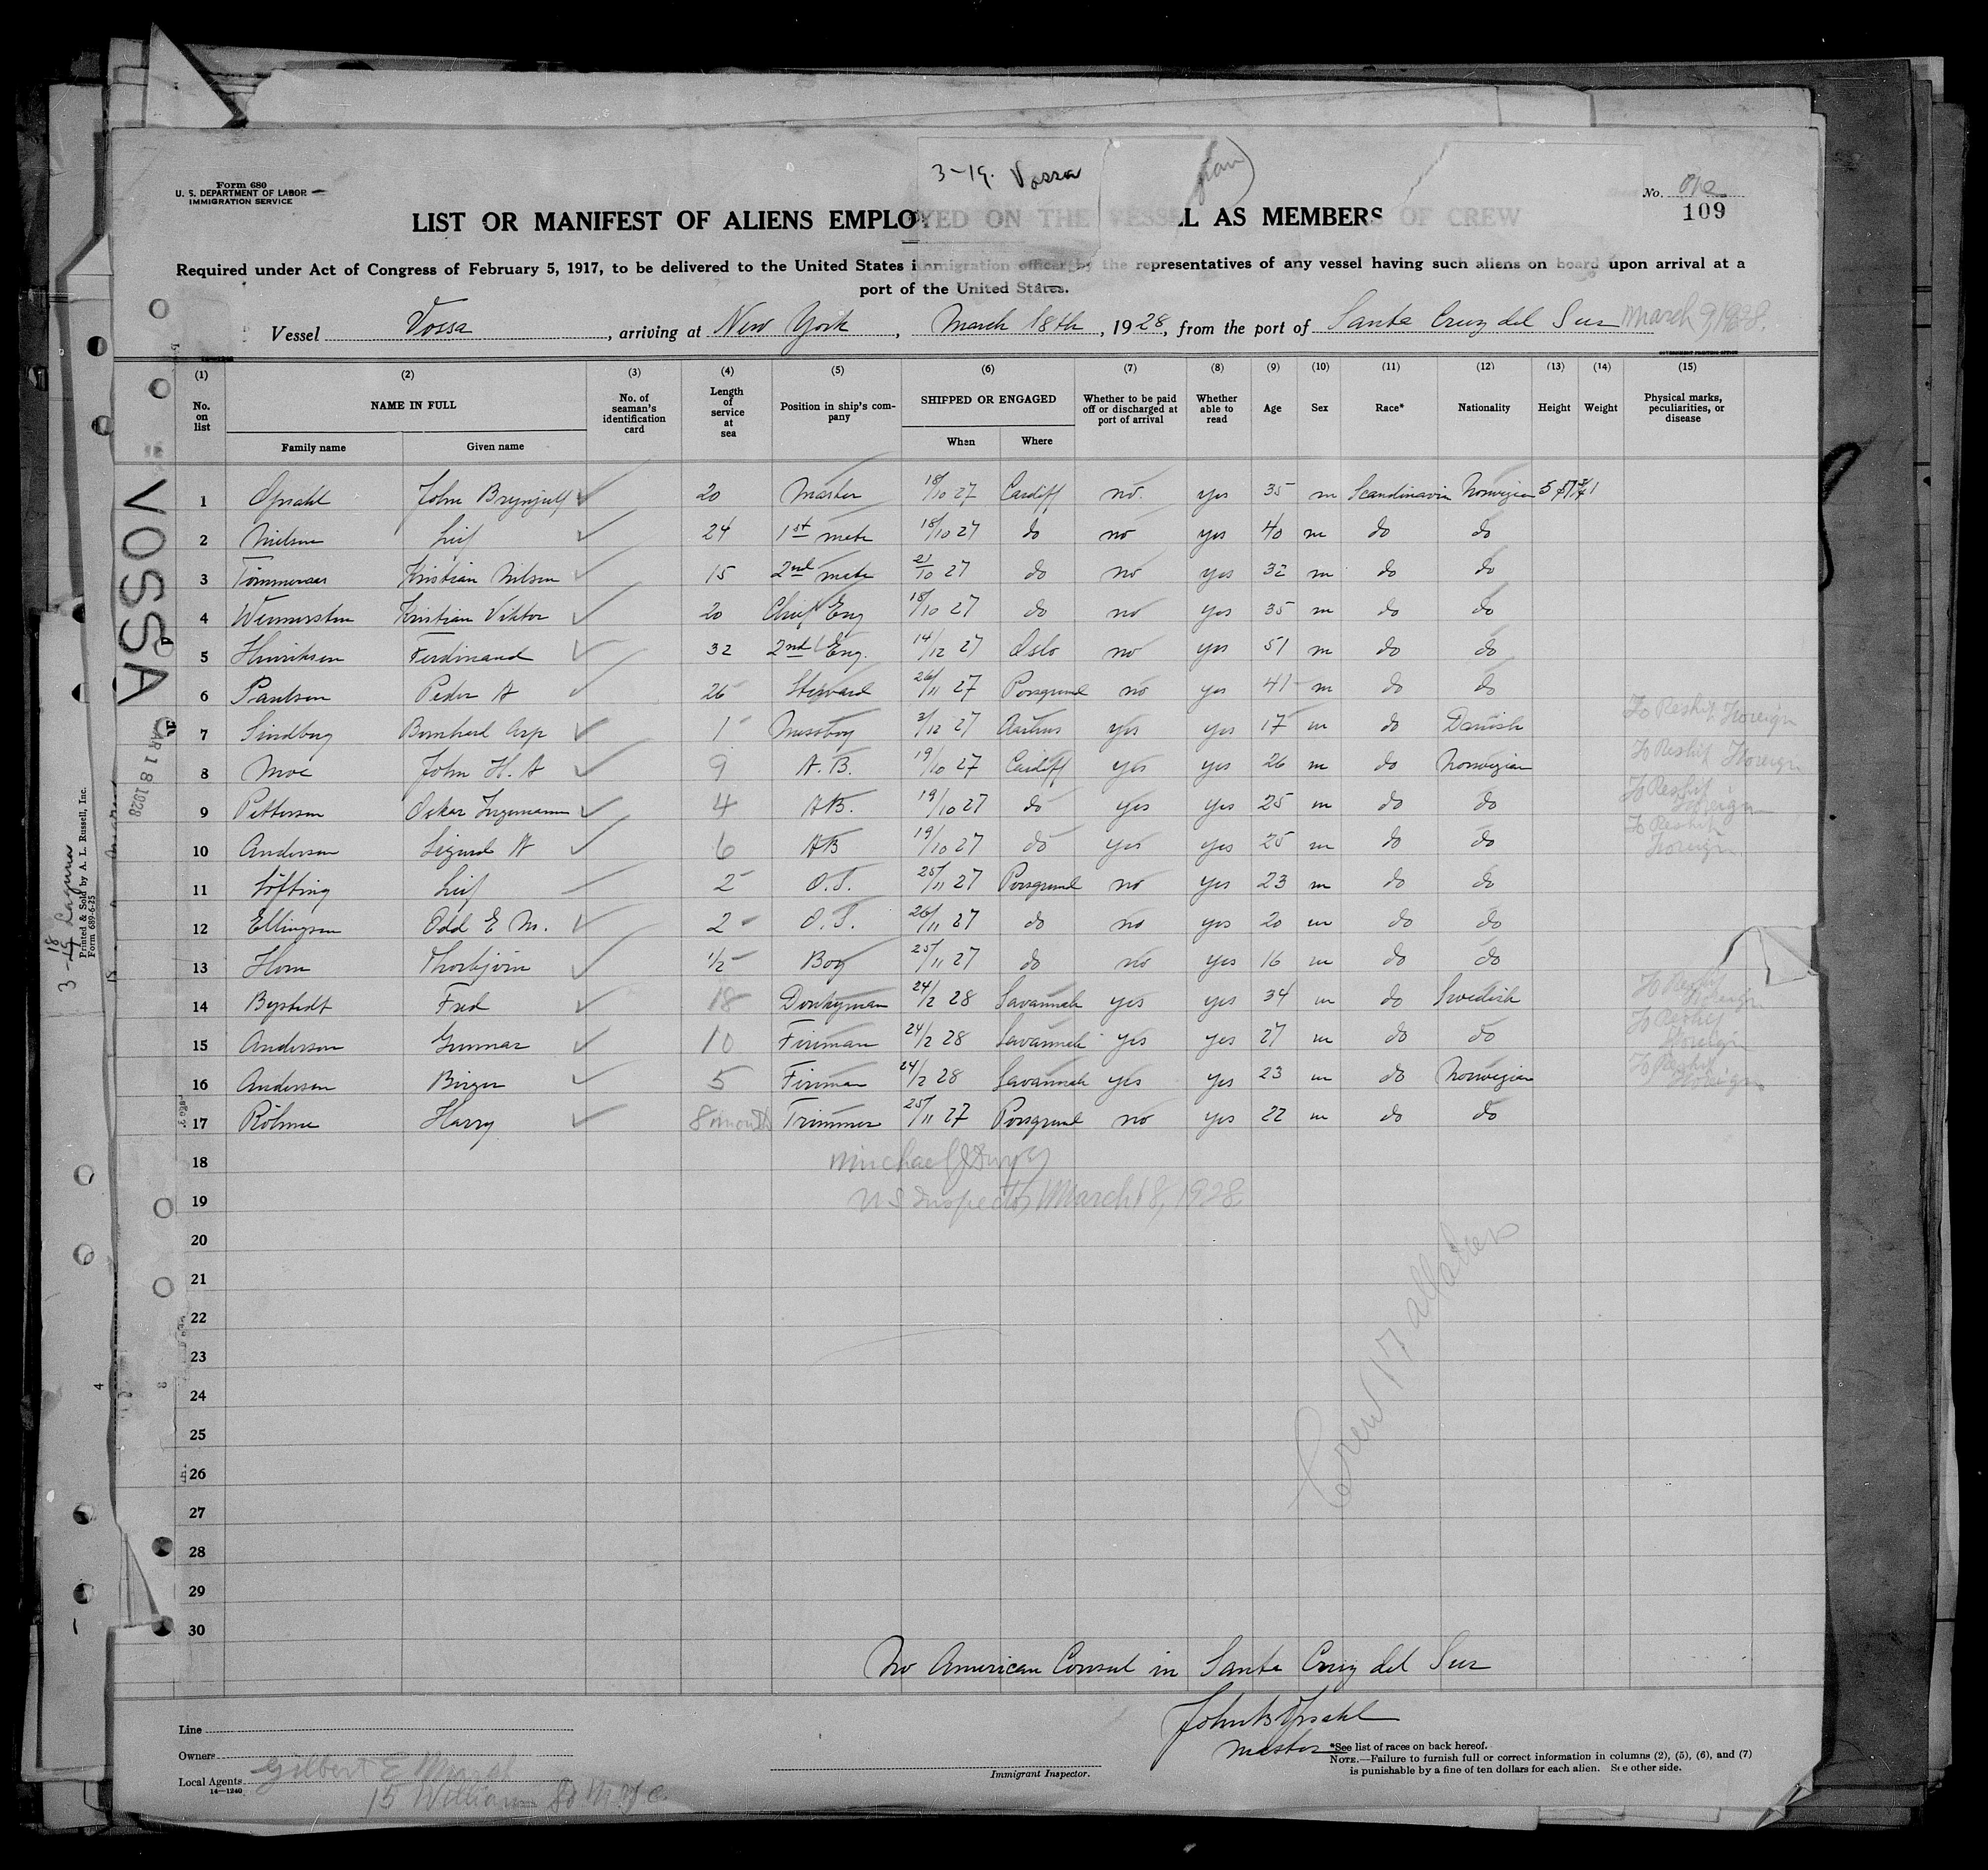 3-19. Vossa
Form 680
U. S. DEPARTMENT OF LABOR
IMMIGRATION SERVICE
No. One
109
LIST OR MANIFEST OF ALIENS EMPLOYED ON THE VESSEL AS MEMBERS OF CREW
Required under Act of Congress of February 5, 1917, to be delivered to the United States immigration officer by the representatives of any vessel having such aliens on board upon arrival at a
port of the United States.
Vessel Vossa, arriving at New York, March 18th, 1928, from the port of Santa Cruz del Sur March 9, 1928.
(1) (2) (3) (4) (5) (6) (7) (8) (9) (10) (11) (12) (13) (14) (15)
No. on list NAME IN FULL Family name Given name No. of seaman's identification card Length of service at sea Position in ship's company SHIPPED OR ENGAGED When Where Whether to be paid off or discharged at port of arrival Whether able to read Age Sex Race* Nationality Height Weight Physical marks, peculiarities, or disease
1 Opsahl John Brynjulf 20 Master 18/10 27 Cardiff no. yes 35 m Scandinavia Norwegian
2 Nielsen Leif 24 1st mate 18/10 27 do no yes 40 m do do
3 Tömmeraas Kristian Nilsen 15 2nd mate 21/10 27 do no yes 32 m do do
4 Wennersten Kristian Viktor 20 Chief Eng 18/10 27 do no yes 35 m do do
5 Henriksen Ferdinand 32 2nd Eng. 14/12 27 Oslo no yes 51 m do do
6 Paulsen Peder A 26 Steward 26/11 27 Porsgrund no yes 41 m do do
7 Lindberg Bernhard Arp 1 Messboy 2/12 27 Aarhus yes yes 17 m do Danish To Reship Foreign
8 Moe John H. A 9 A.B. 19/10 27 Cardiff yes yes 26 m do Norwegian To Reship Foreign
9 Petterson Oskar Ingemann 4 AB. 19/10 27 do yes yes 25 m do do To Reship Foreign
10 Andersen Sigurd A 6 AB 19/10 27 do yes yes 25 m do do To Reship Foreign
11 Löfting Leif 2 O.S. 25/11 27 Porsgrund no yes 23 m do do
12 Ellingsen Odd E M. 2 O.S. 26/11 27 do no yes 20 m do do
13 Horn Thorbjörn 1/2 Boy 25/11 27 do no yes 16 m do do
14 Bystedt Fred 18 Donkyman 24/2 28 Savannah yes yes 34 m do Swedish To Reship Foreign
15 Anderson Gunnar 10 Fireman 24/2 28 Savannah yes yes 27 m do do To Reship Foreign
16 Andersen Birger 5 Fireman 24/2 28 Savannah yes yes 23 m do Norwegian To Reship Foreign
17 Röhme Harry 8 months Trimmer 25/11 27 Porsgrund no yes 22 m do do
18
Michael J Dwyer
19
US Inspector March 18, 1928
20
21
22
23
24
25
26
27
28
29
30
Crew 17 all aliens
No American Consul in Santa Cruz del Sur
John B Opsahl
Master
Line
Owners
Local Agents Gilbert E
15 William St N.Y.C.
14—1240
Immigrant Inspector.
*See list of races on back hereof.
NOTE.—Failure to furnish full or correct information in columns (2), (5), (6), and (7)
is punishable by a fine of ten dollars for each alien. See other side.
VOSSA
MAR 18 1928
Printed & Sold by A. L. Russell, Inc.
Form 689-6-25